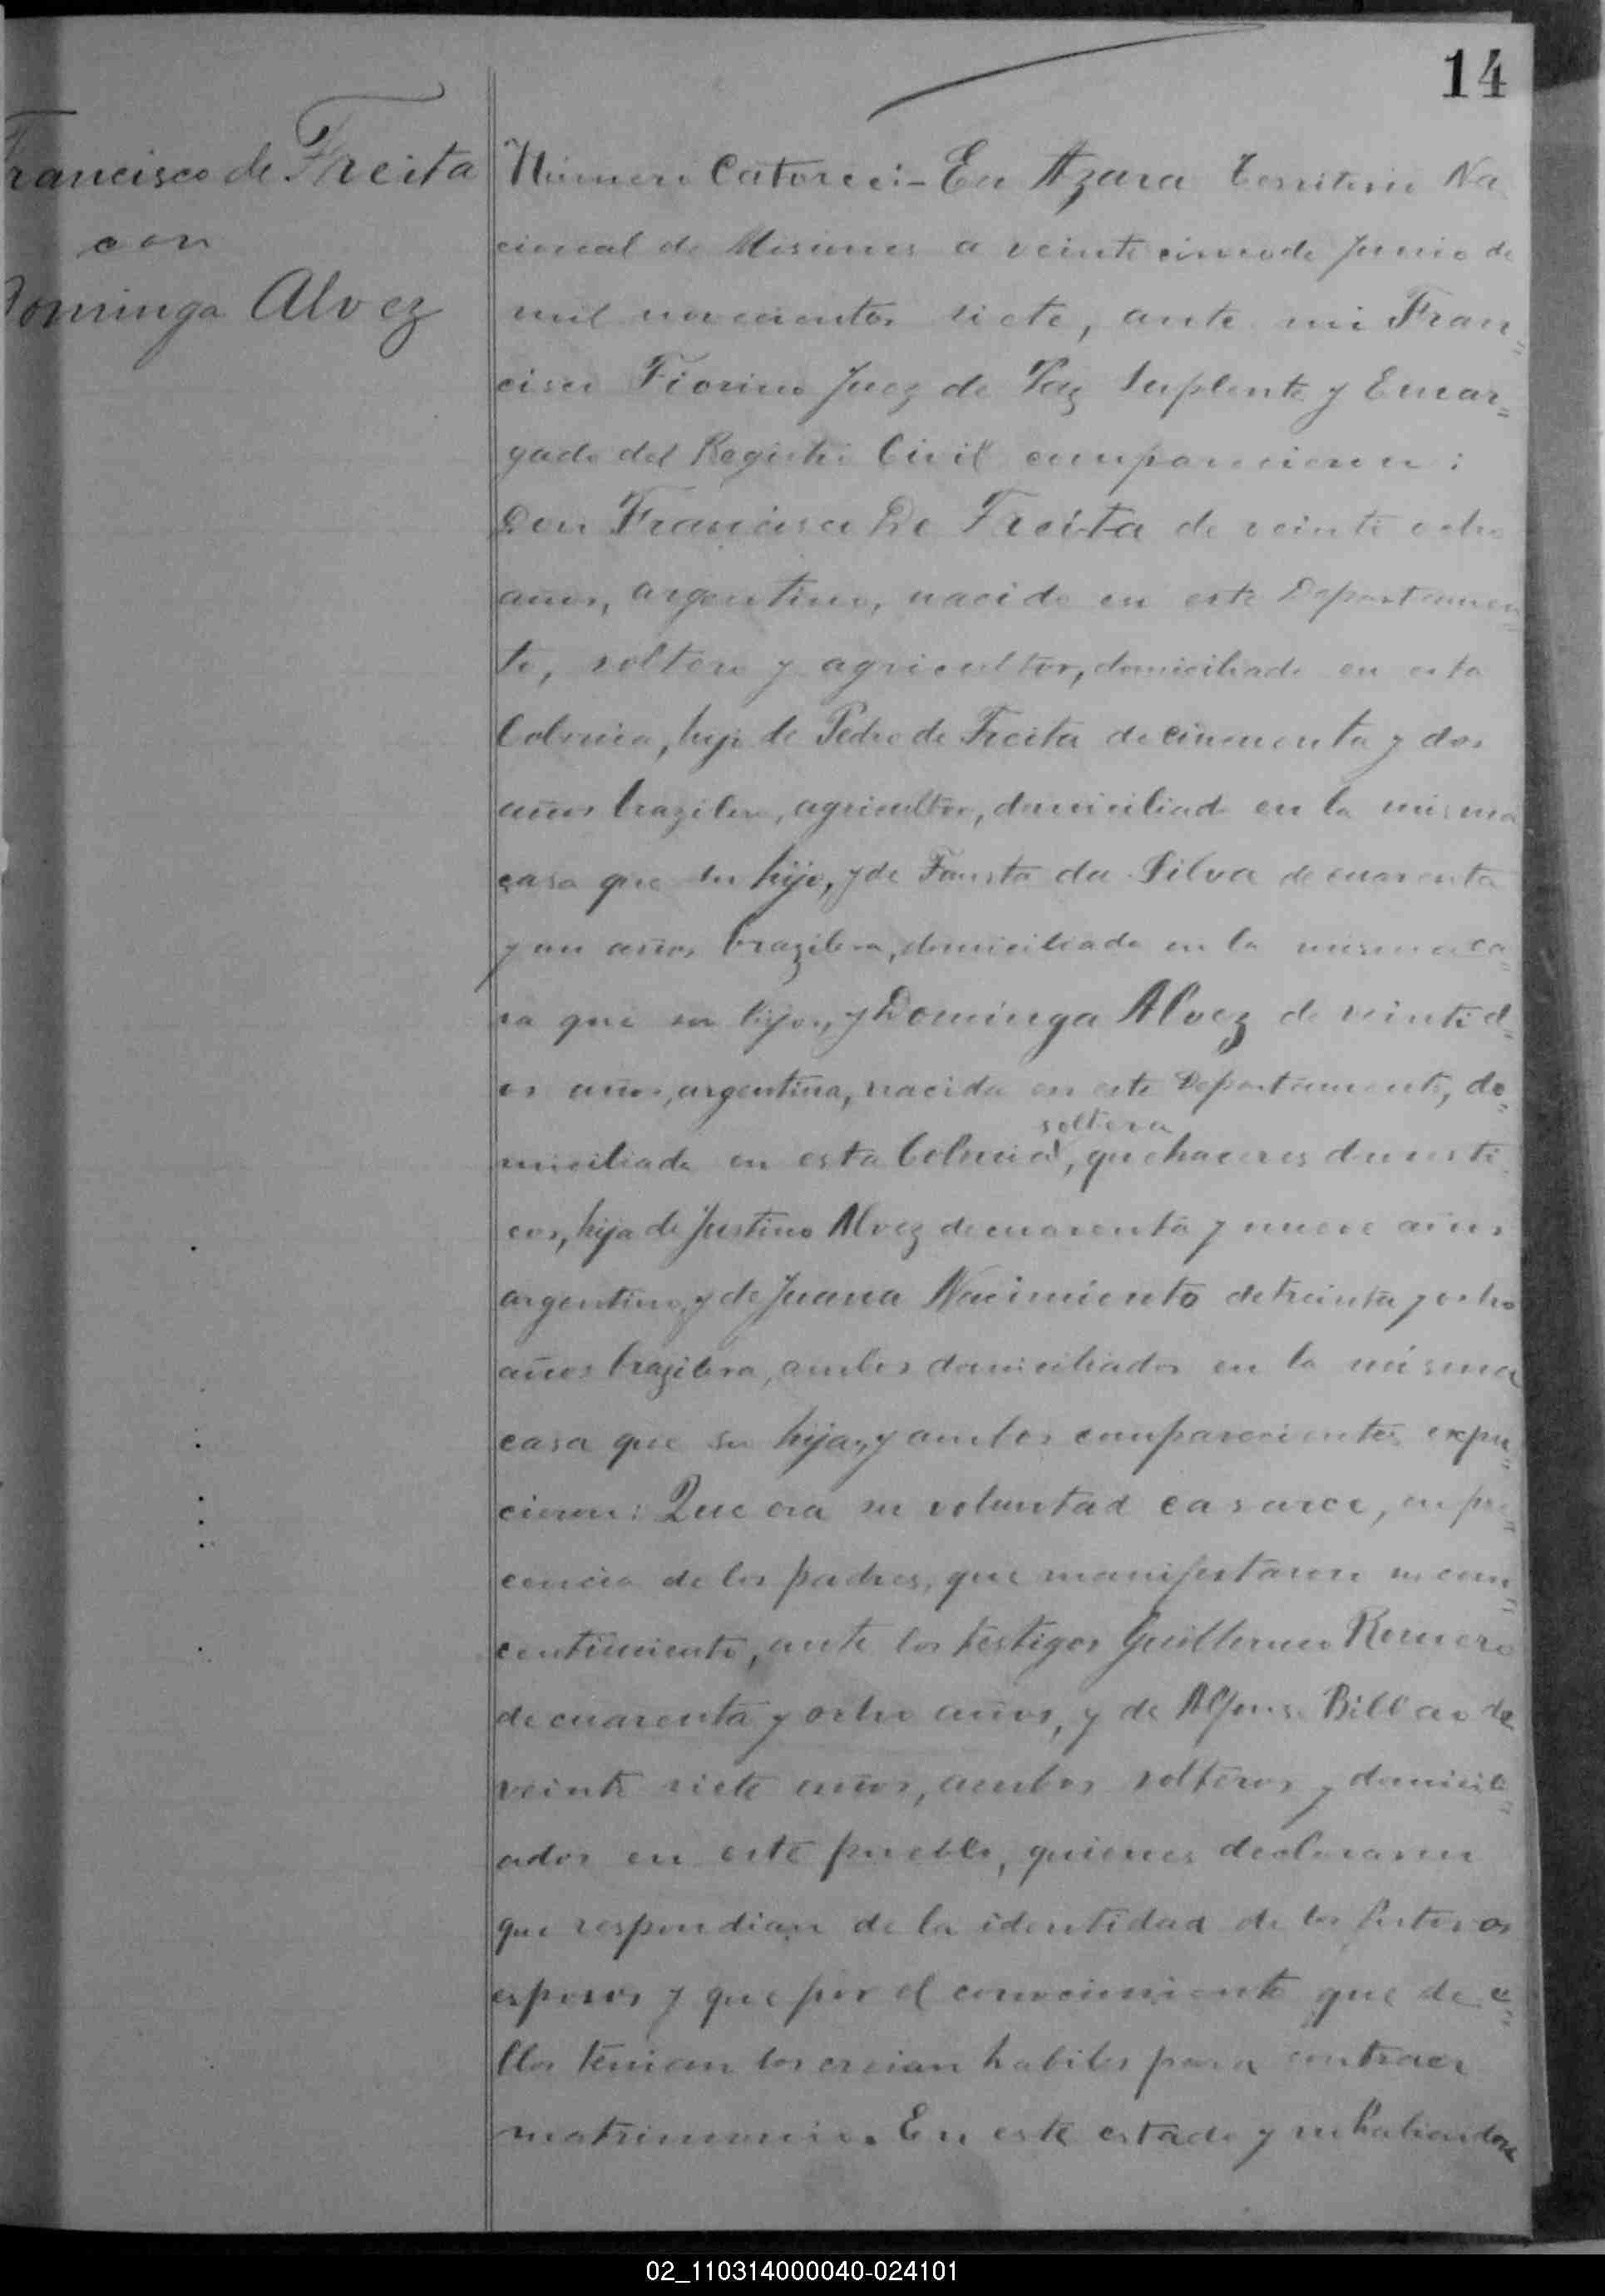 14
Francisco de Freita
con
Dominga Alvez
Número Catorce:- En Azara Territorio Na
cional de Misiones a veinte cinco de Junio de
mil novecientos siete, ante mi Fran=
cisco Fiorino Juez de Paz Suplente y Encar=
gado del Registro Civil comparecieron:
Don Francisco De Freita de veinte ocho
años, argentino, nacido en este Departamen=
to, soltero y agricultor, domiciliado en esta
Colonia, hijo de Pedro de Freita de cincuenta y dos
años brazilero, agricultor, domiciliado en la misma
casa que su hijo, y de Fausta da Silva de cuarenta
y un años brazilera, domiciliada en la misma ca=
sa que su hijo, y Dominga Alvez de veintid=
os años, argentina, nacida en este Departamento, do=
soltera
miciliada en esta Colonia, quehaceres domesti
cos, hija de Justino Alvez de cuarenta y nueve años
argentino, y de Juana Nacimiento de treinta y ocho
años brazilera, ambos domiciliados en la misma
casa que su hija, y ambos comparecientes expu=
cieron: Que era su voluntad casarce, en pre=
cencia de los padres, que manifestaron su con=
centimiento, ante los testigos Guillermo Romero
de cuarenta y ocho años, y de Alfonso Bilbao de
veinte siete años, ambos solteros y domicili=
ados en este pueblo, quienes declararon
que respondian de la identidad de los futuros
esposos y que por el conocimiento que de e=
llos tenian los creian habiles para contraer
matrimonio. En este estado y no habiendose
02_110314000040-024101